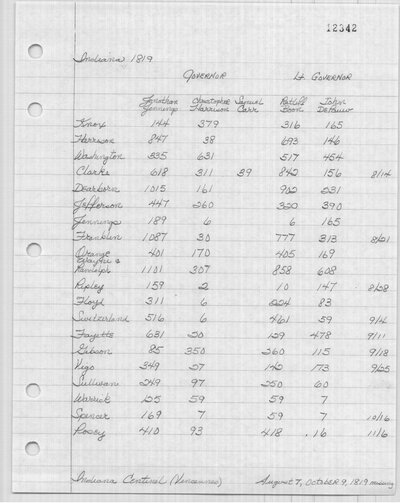 12342
Indiana 1819
Governor Lt. Governor
Jonathan Jennings Christopher Harrison Samuel Carr Ratliff Boon John DePauw
Knox 144 379 316 165
Harrison 847 38 693 146
Washington 335 631 517 454
Clark 618 311 39 842 156 8/14
Dearborn 1015 161 902 231
Jefferson 447 260 320 390
Jennings 189 6 6 165
Franklin 1087 30 777 313 8/21
Orange 401 170 405 169
Wayne &
Randolph 1101 307 858 608
Ripley 159 2 10 147 8/28
Floyd 311 6 224 83
Switzerland 516 6 461 59 9/4
Fayette 631 20 129 478 9/11
Gibson 85 350 260 115 9/18
Vigo 349 27 142 173 9/25
Sullivan 249 97 250 60
Warrick 125 59 59 7
Spencer 169 7 59 7 10/16
Posey 410 93 418 16 11/6
Indiana Centinel (Vincennes) August 7, October 9, 1819 missing